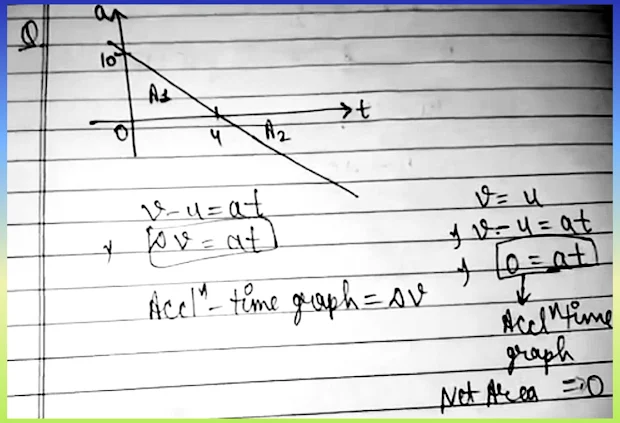 Q
a
10
A1
t
0
4
A2
v-u=at
Δv = at
Accl^n - time graph = Δv
v= u
v- u = at
0 = at
Accl^n time
graph
Net Area => 0